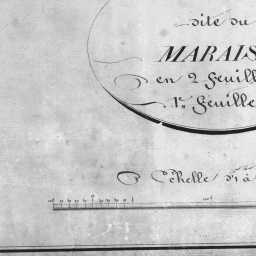 dite du
MARAIS
en 2 Feuill
1re Feuille
Echelle de 1 à